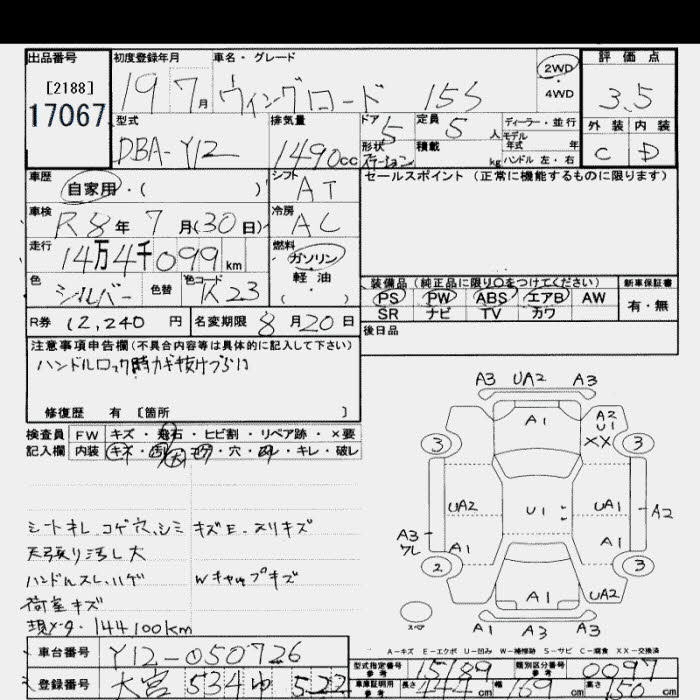 出品番号 初度登録年月 車名・グレード 評価点
[2188] 19 7月 ウィングロード 15S 2WD 4WD 3.5
17067
型式 排気量 ドア 定員 ディーラー・並行 外装 内装
DBA-Y12 1490cc 5 5人 モデル年式 年 C D
形状 ステーション 積載 kg ハンドル 左・右
車歴 シフト セールスポイント (正常に機能するものに限ります)
自家用・( ) AT
車検 冷房
R8年 7月(30日) AC
走行 燃料
14万4千099km ガソリン
軽油
( )
色 色替 色コード 装備品 (純正品に限り○をつけてください) 新車保証書
シルバー K23 PS PW ABS エアB AW 有・無
SR ナビ TV カワ
R券 12,240円 名変期限 8月20日 後日品
注意事項申告欄(不具合内容等は具体的に記入して下さい)
ハンドルロック時カギ抜けづらい
修復歴 有 [箇所 ]
検査員 FW キズ・飛石・ヒビ割・リペア跡・×要
記入欄 内装 キズ・・穴・・キレ・破レ
A3 UA2 A3
A1 A2 U1 XX
3 3
UA2 U1 UA1 A2
A3 A1 A1
2 3
A1 UA2
スペア A1 A3 A3
シートキレ コゲ穴、シミ キズE・スリキズ
天張り汚レ大
ハンドルスレ、ハゲ Wキャップキズ
荷室キズ
現メーター・144100km
A-キズ E-エクボ U-凹み W-補修跡 S-サビ C-腐食 XX-交換済
車台番号 Y12-050726 型式指定番号 参考 15189 類別区分番号 参考 0097
登録番号 大宮 534 ゆ 522 車庫証明用 参考 長さ 444cm 幅 169cm 高さ 150cm